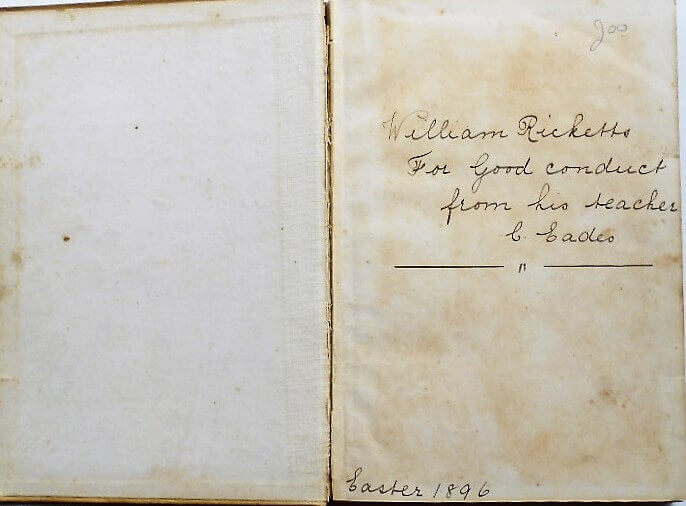 William Ricketts
For Good conduct
from his teacher
C. Eades
Easter 1896